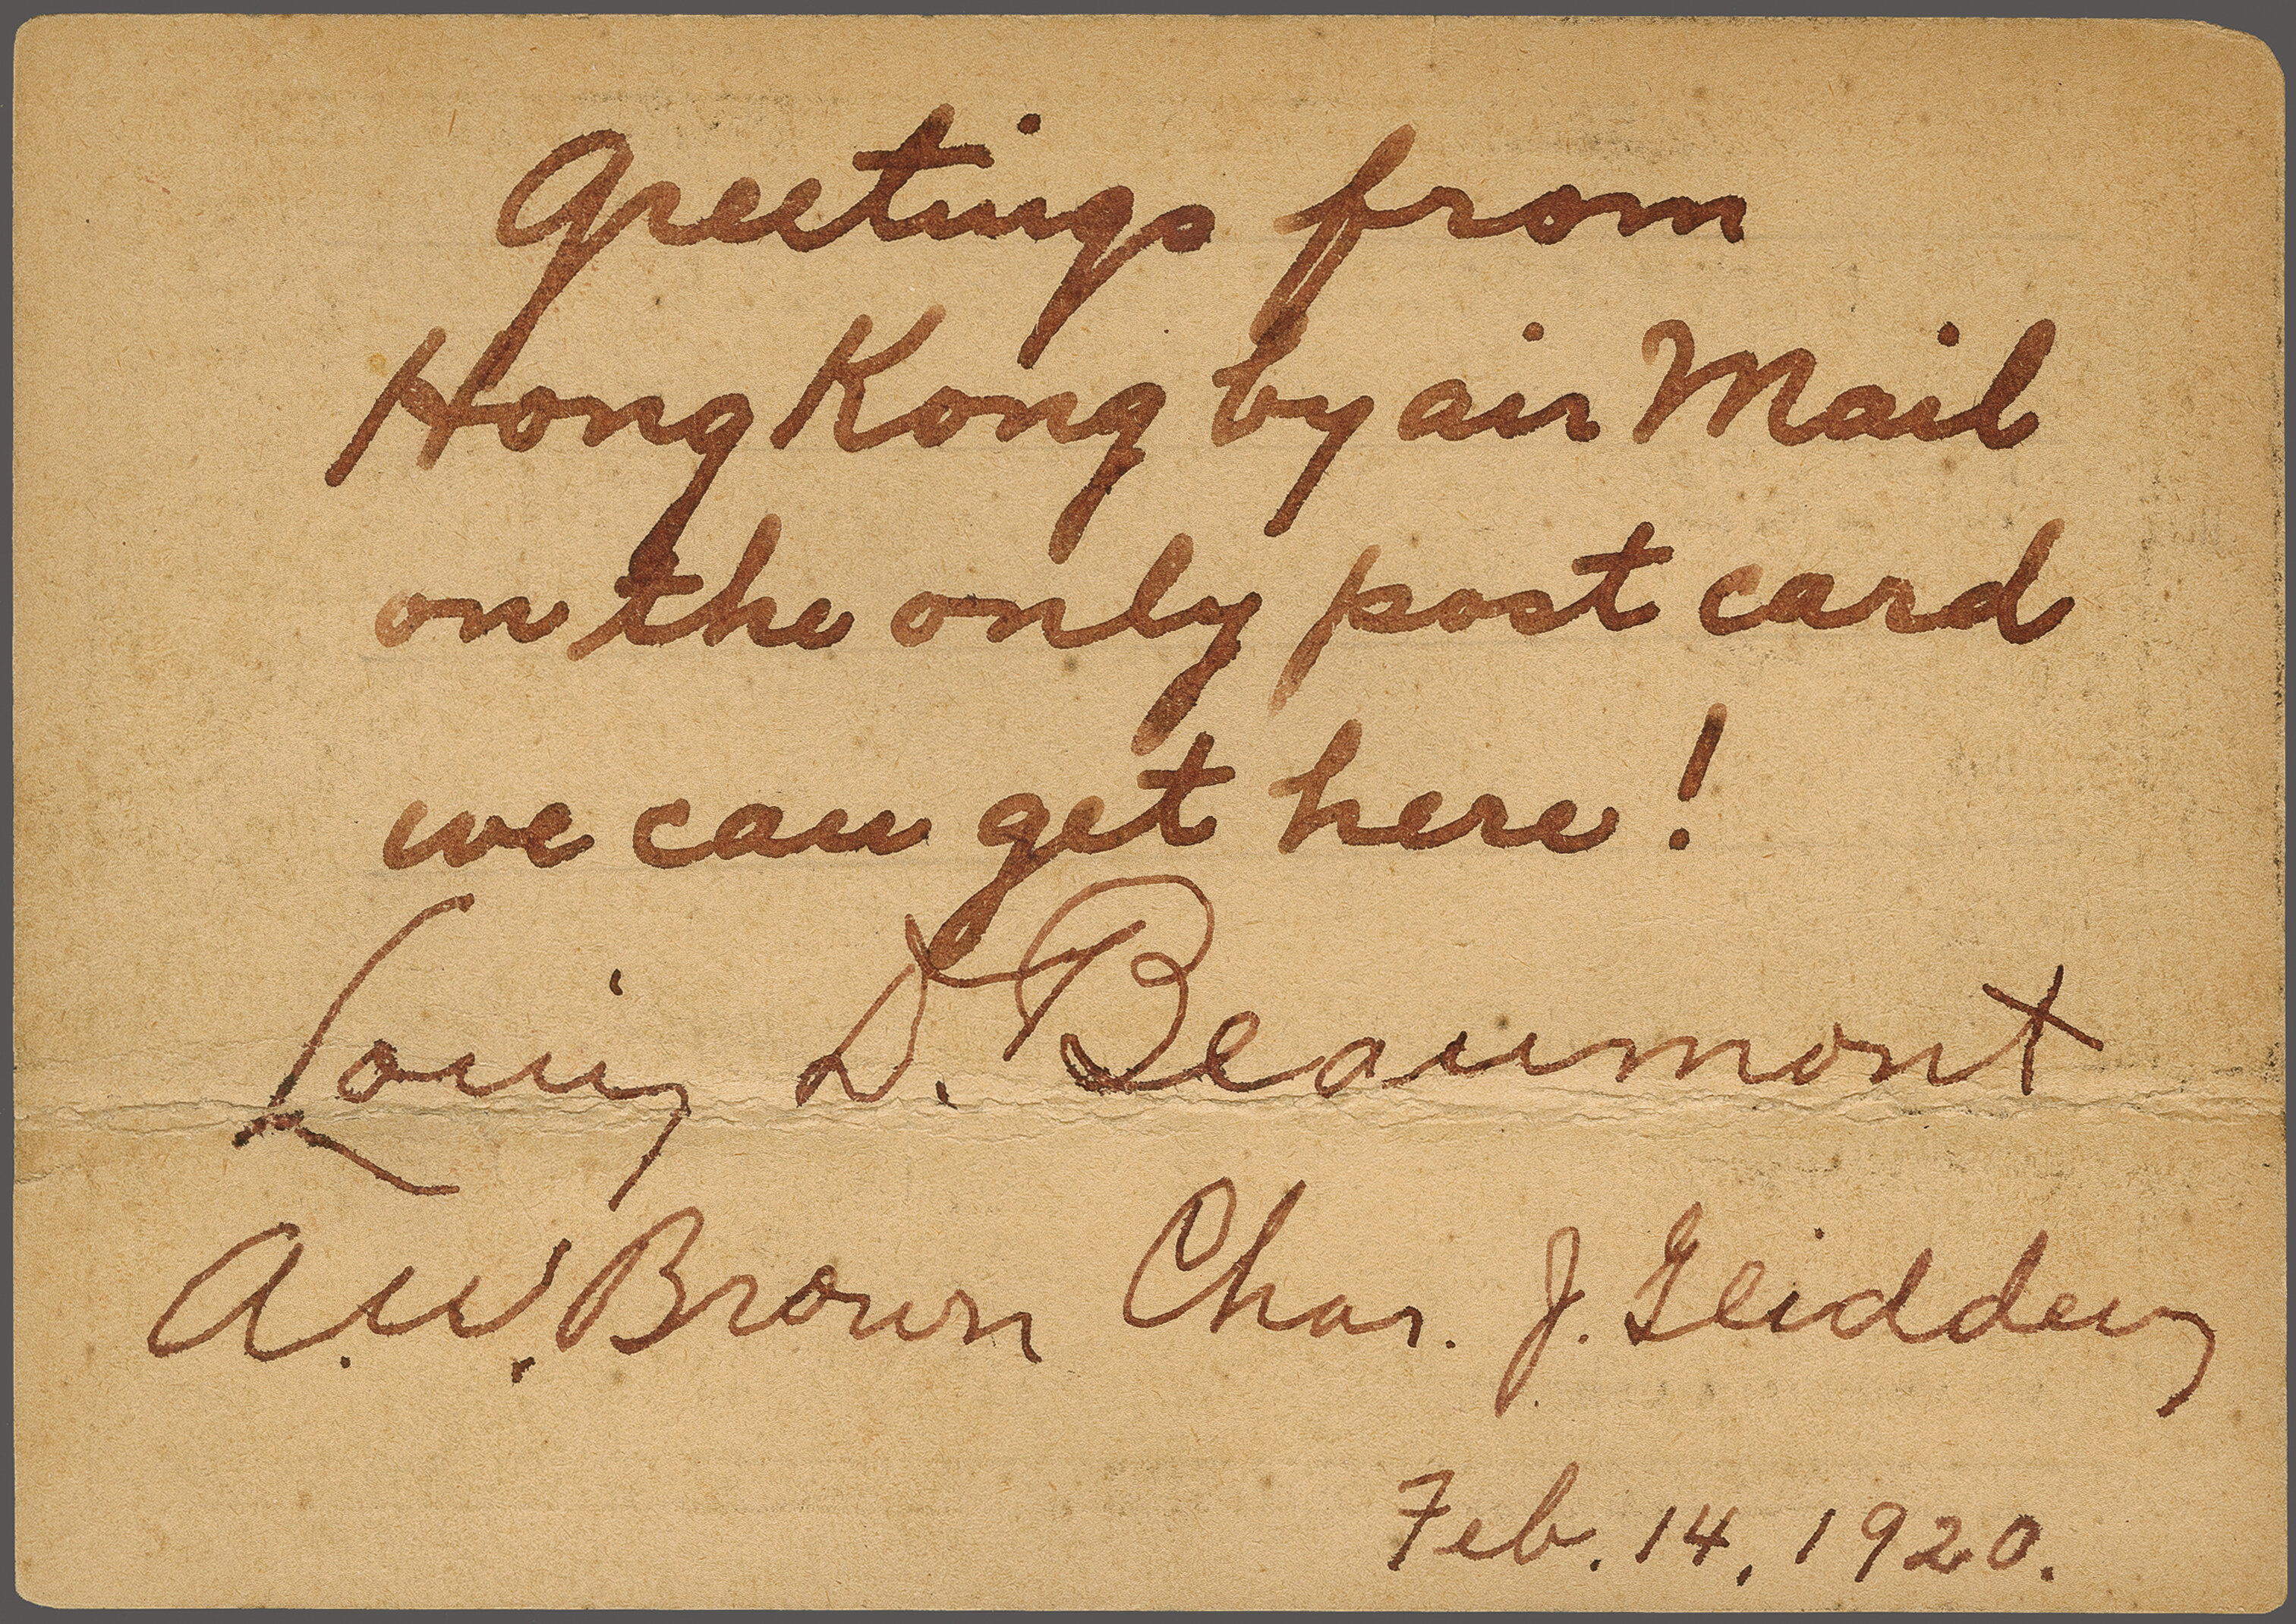 Greetings from
Hong Kong by air Mail
on the only post card
we can get here!
Louis D. Beaumont
A. W. Brown Chas. J. Glidden
Feb. 14, 1920.